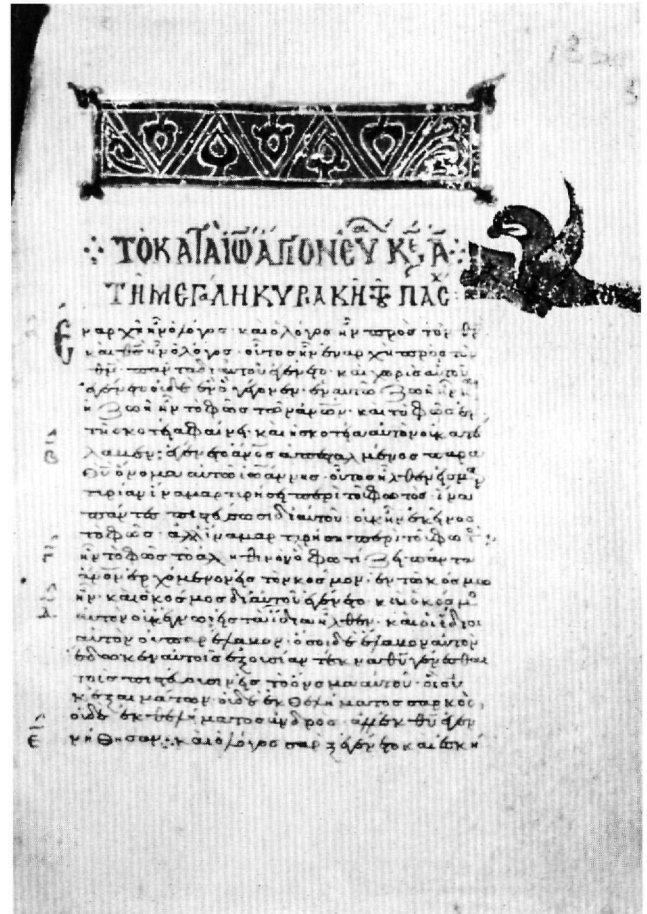 ΤΟ ΚΑΤΑ ΙΩ ΑΓΙΟΝ ΕΥ Κε Α
ΤΗ ΜΕΓΑΛΗ ΚΥΡΑΚΗ ΠΑΣΧ
Ἐν ἀρχῆ ἦν ὁ λόγος· καὶ ὁ λόγος ἦν πρὸς τὸν θν
καὶ θς ἦν ὁ λόγος· οὗτος ἦν ἐν ἀρχῆ πρὸς τὸν
θν· πάντα δι αυτοῦ ἐγένετο· καὶ χωρὶς αὐτοῦ
ἐγένετο οὐδὲ ἐν ὁ γέγονεν· ἐν αυτῶ ζωὴ ἦν
ἡ ζωὴ ἦν τὸ φῶς τῶν ἀνων· καὶ τὸ φῶς ἐν
τῆ σκοτεία φαίνει· καὶ ἡ σκοτεία αυτὸν οὐ κατε
Β λαμεν· ἐγένετο ἀνος ἀπεσταλμένος παρα
θῦ ὄνομα αυτῶ ἰωάννης· οὗτος ἦλθεν εἰς μαρ
τιρίαν ἵνα μαρτιρήση περὶ τοῦ φωτὸς· ἵνα
πάντες πιστέσωσι δι αυτοῦ· οὐκ ἦν ἐκεῖνος
τὸ φῶς· ἀλλ ἵνα μαρτιρήση περὶ τοῦ φω
Γ ἦν τὸ φῶς τὸ ἀληθινὸν ὁ φωτίζει πάντα
ἀνον ἐρχόμενον εἰς τὸν κόσμον· ἐν τῶ κόσμω
Δ ἦν· καὶ ὁ κόσμος δι αυτοῦ ἐγένετο· καὶ ὁ κόσμο
αυτὸν οὐκ ἔγνω εἰς τὰ ἴδια ἦλθεν· καὶ οἱ ἴδιοι
αυτὸν οὐ παρέλαμον· ὅσοι δὲ ἔλαμον αυτὸν
ἔδωκεν αυτοῖς ἐξουσίαν τέκνα θῦ γενέσθαι
τοῖς πιστέουσιν εἰς τὸ ὄνομα αυτοῦ· οἱ οὐ
κ ἐξ αιμάτων οὐδὲ ἐκ θελήματος σαρκὸς,
οὐδὲ ἐκ θελήματος ἀνδρὸς· ἀλλ ἐκ θῦ ἐγεν
Ε νήθησαν· καὶ ὁ λόγος σὰρξ ἐγένετο καὶ ἐσκή